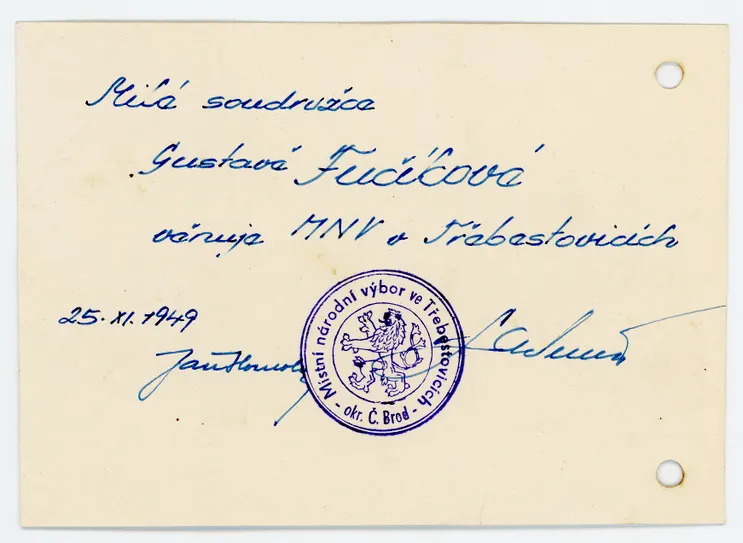 Milé soudružce
Gustavě Fučíkové
věnuje MNV v Třebestovicích
25. XI. 1949
Místní národní výbor ve Třebestovicích
- okr. Č. Brod -
Jan